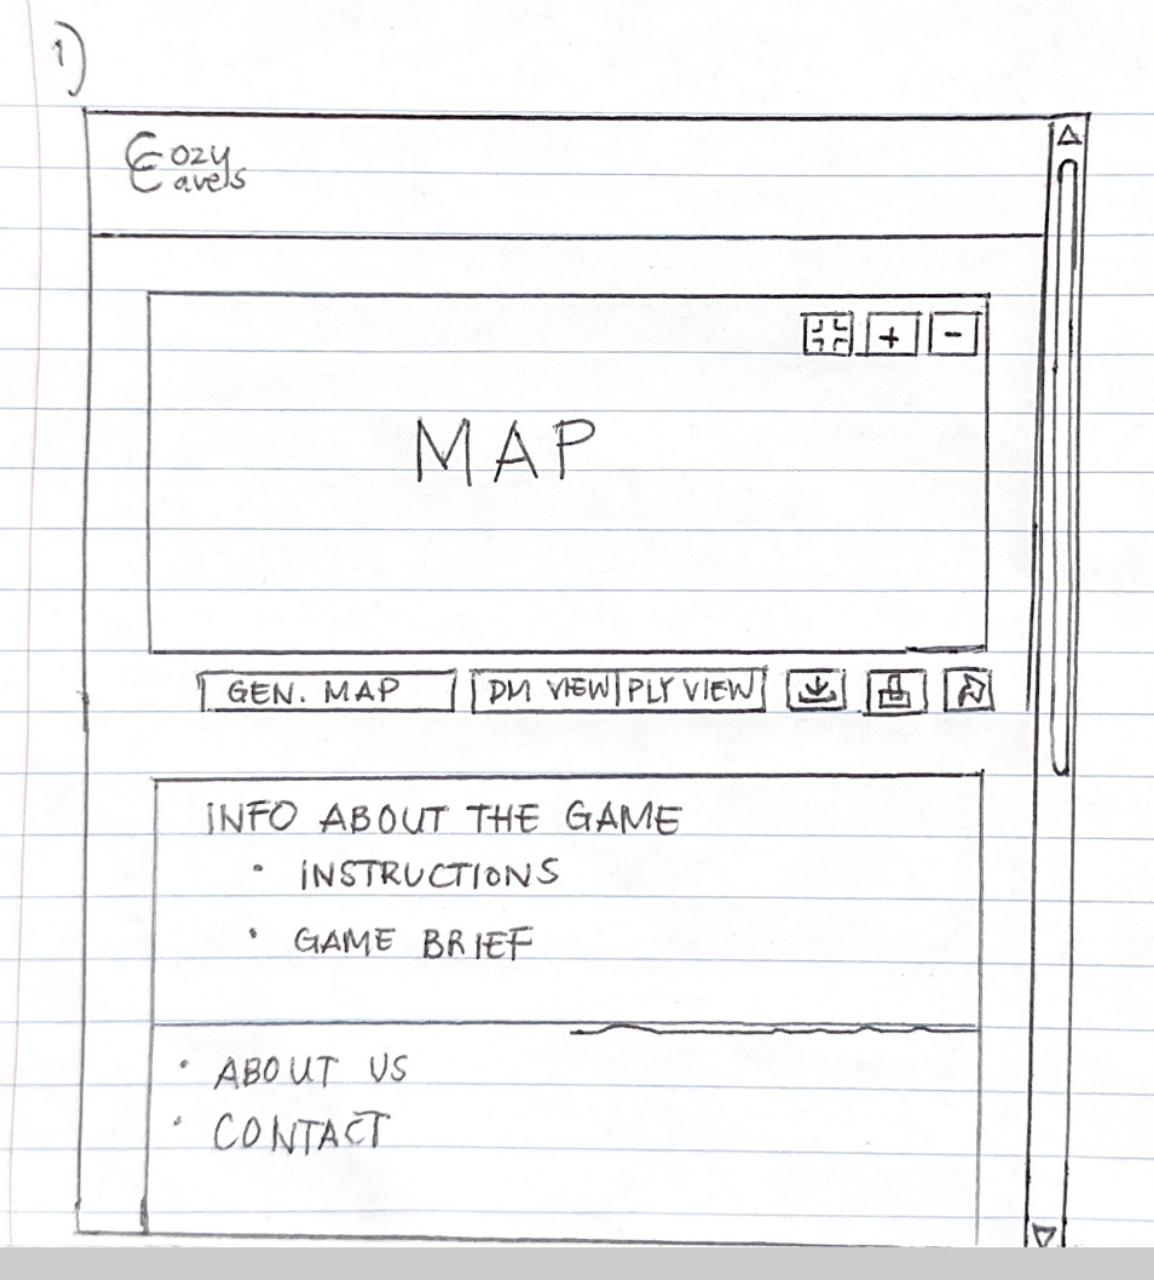 1)
Cozy
Cavels
+ -
MAP
GEN. MAP DM VIEW PLY VIEW
INFO ABOUT THE GAME
• INSTRUCTIONS
• GAME BRIEF
• ABOUT US
• CONTACT